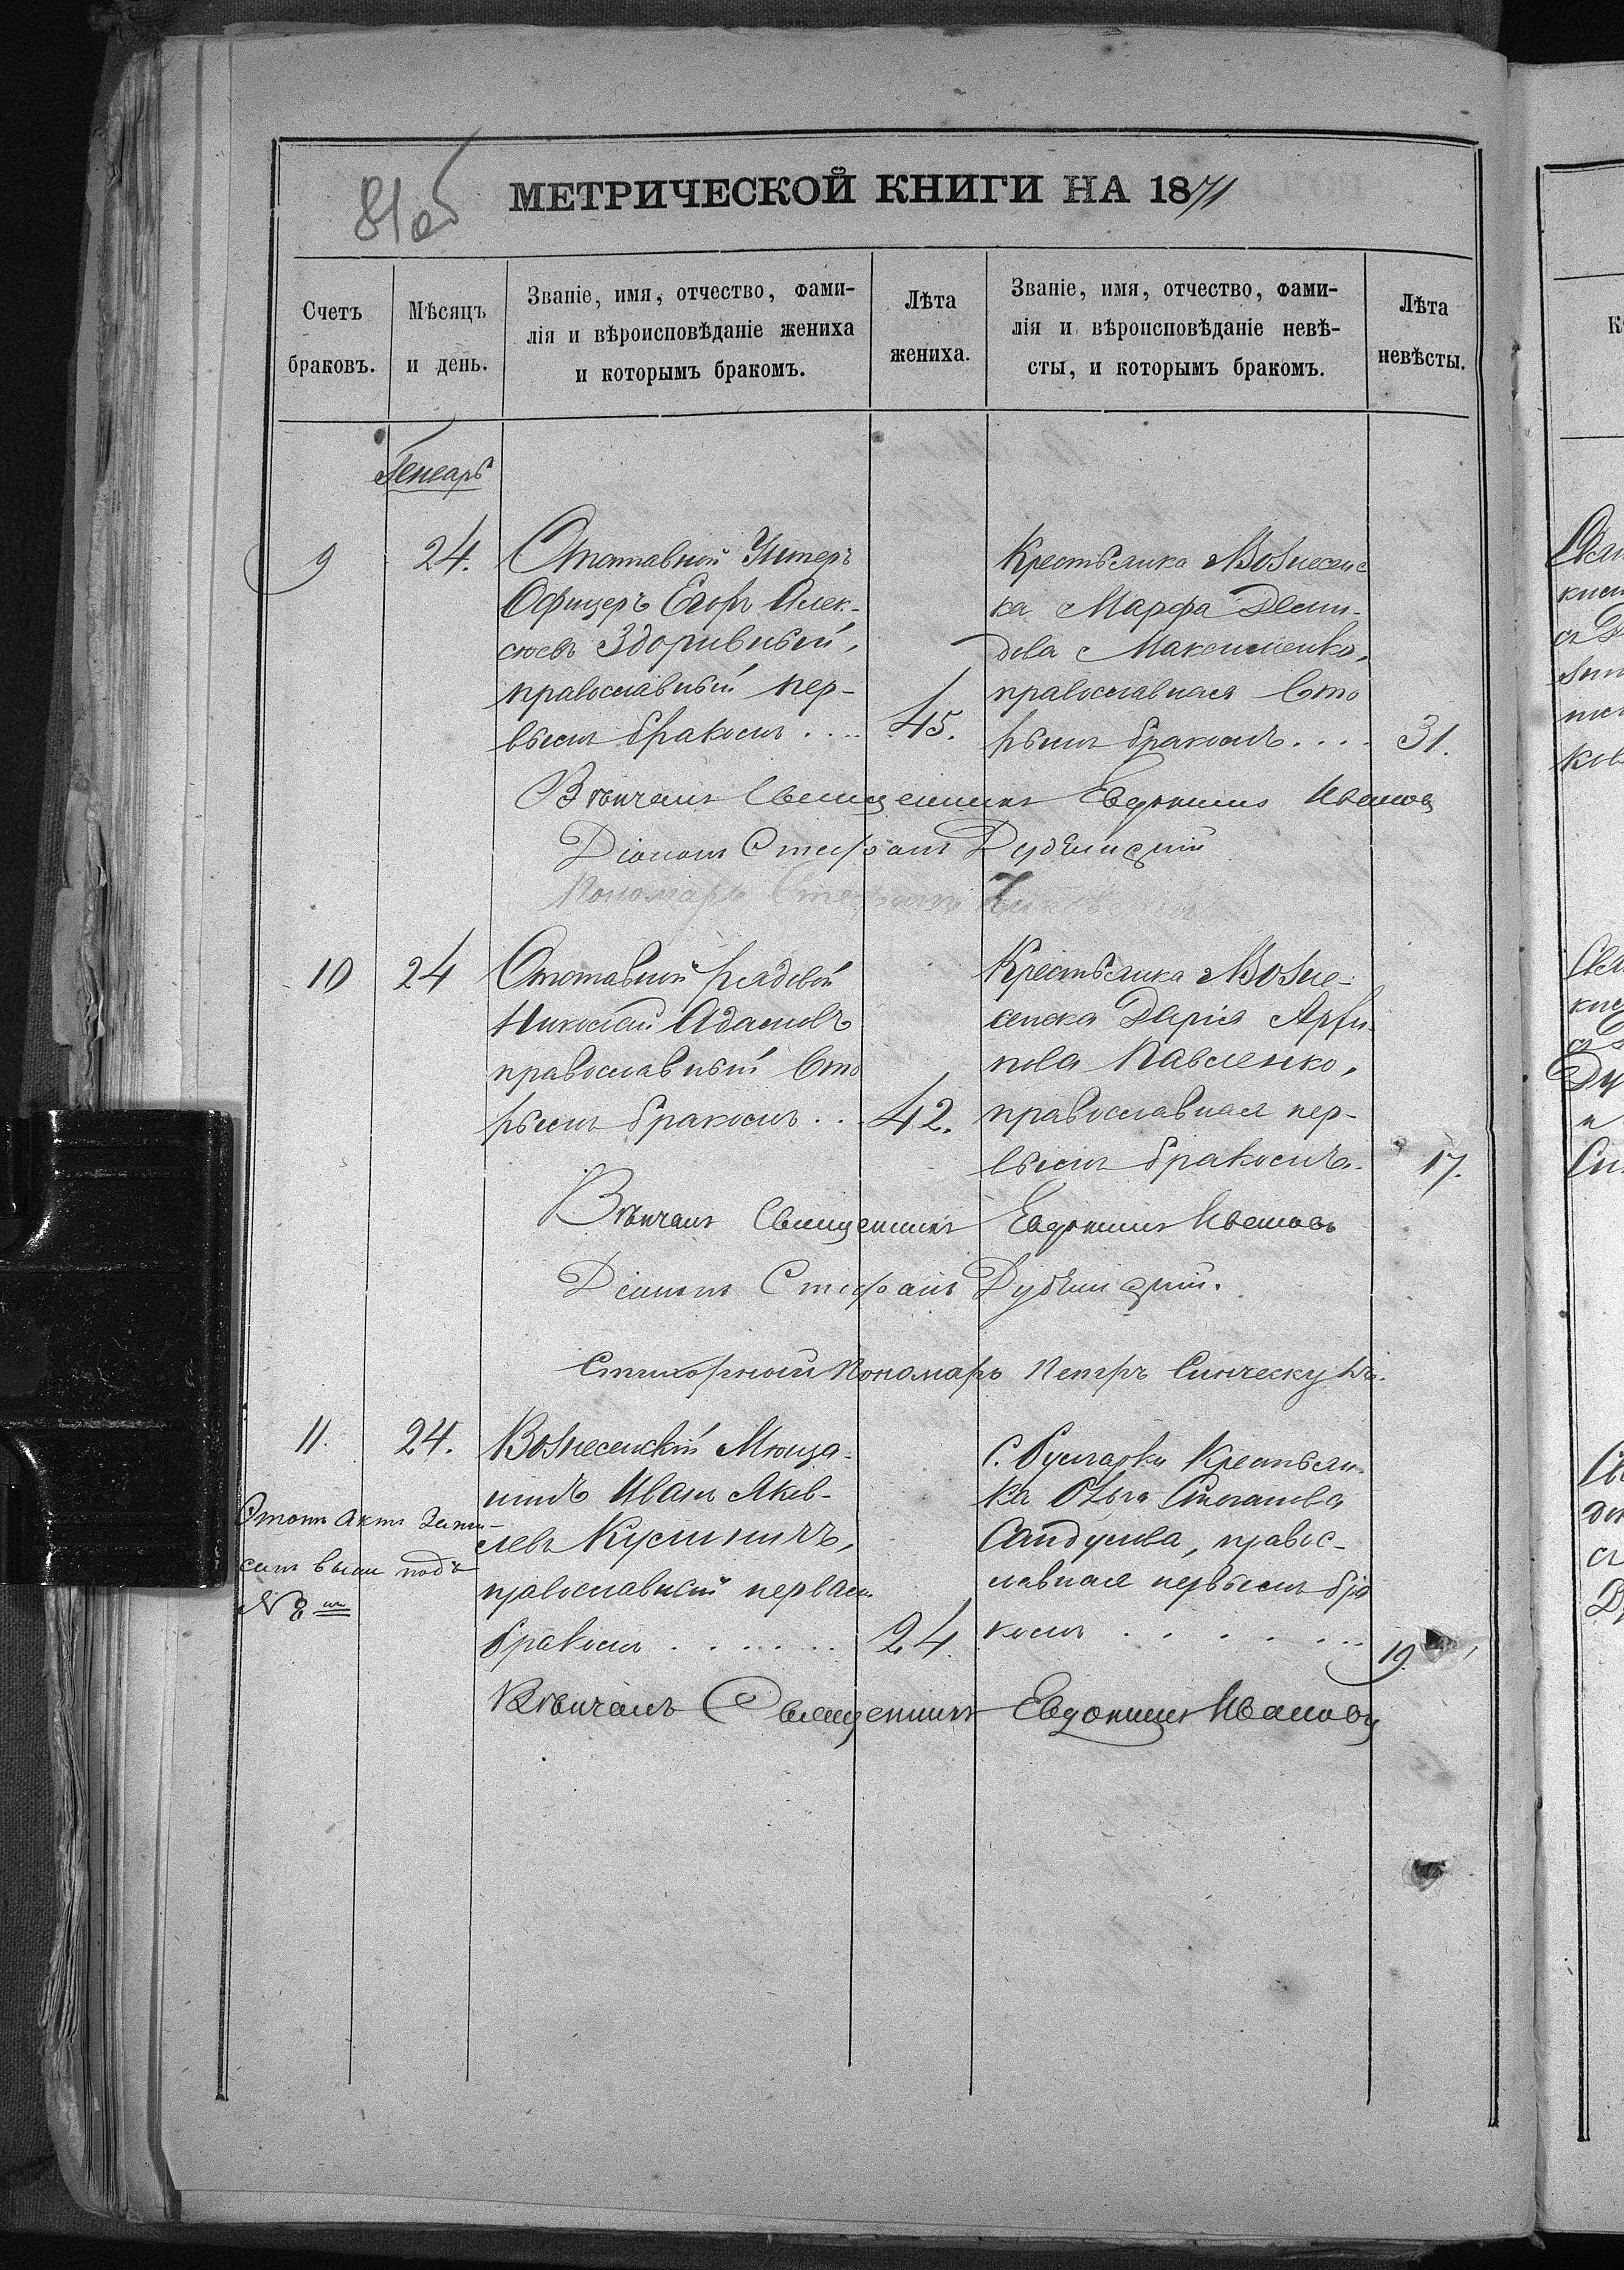 81об
МЕТРИЧЕСКОЙ КНИГИ НА 1871
Счетъ браковъ.
Мѣсяцъ и день.
Званіе, имя, отчество, фами-
лія и вѣроисповѣданіе жениха
и которымъ бракомъ.
Лѣта жениха.
Званіе, имя, отчество, фами-
лія и вѣроисповѣданіе невѣ-
сты, и которымъ бракомъ.
Лѣта невѣсты.
Генварь
9
24.
Отставной Унтеръ
Офицеръ Егоръ Алек-
сѣевъ
православный пер-
вымъ бракомъ . . . .
45.
Крестьянка Вознесенс
ка Марфа Деми-
дова Максименко,
православная вто
рымъ бракомъ . . . .
31.
Вѣнчалъ Священникъ Евдокимъ Ивановъ
Діаконъ Стефанъ
Пономарь Стефанъ
10
24
Отставной рядовой
Николай Адамовъ
православный вто
рымъ бракомъ . . .
42.
Крестьянка Возне-
сенска Дарія Архи-
пова Павленко,
православная пер-
вымъ бракомъ.
17.
Вѣнчалъ Священникъ Евдокимъ Ивановъ
Діаконъ Стефанъ
Стихарный Пономарь Петръ
11.
24.
Этотъ актъ запи-
санъ выше подъ
№ 8 мъ
Вознесенскій Мѣща-
нинъ Иванъ Яков-
левъ
православный первымъ
бракомъ . . . . . . .
24.
С. Булгарки Крестьян-
ка Ольга Степанова
Сандулова, правос-
лавная первымъ бра
комъ . . . . . . .
19.
Вѣнчалъ Священникъ Евдокимъ Ивановъ